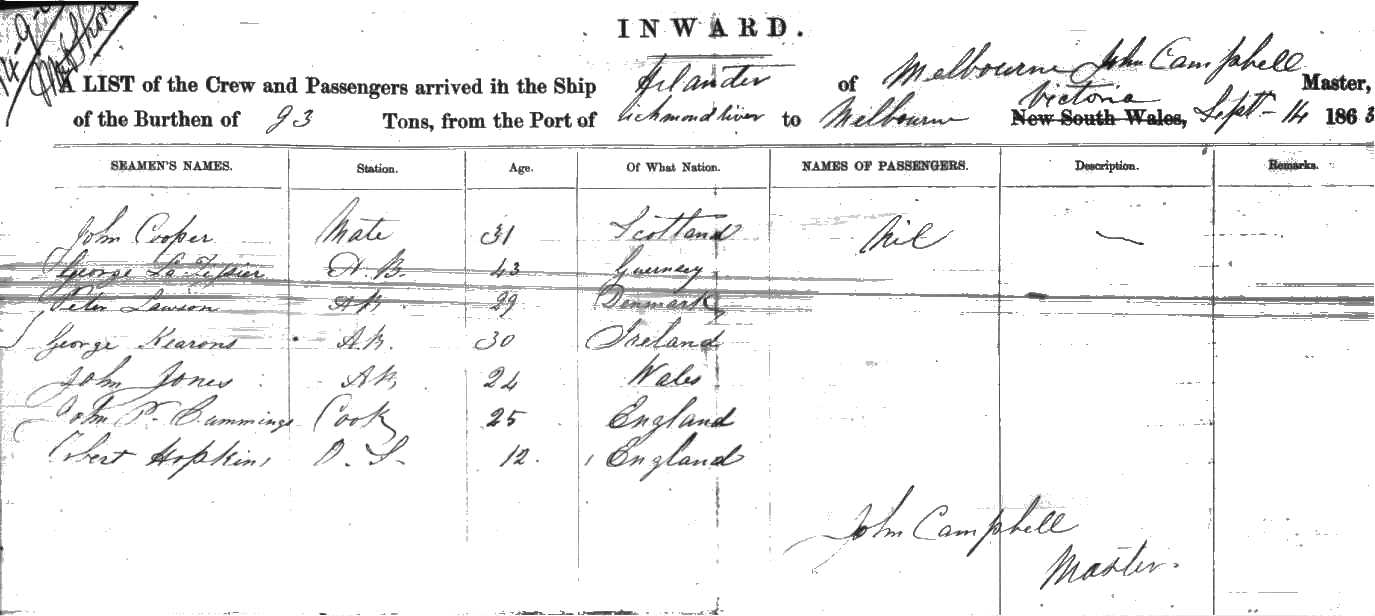 INWARD.
A LIST of the Crew and Passengers arrived in the Ship Islander of Melbourne John Campbell Master,
of the Burthen of 93 Tons, from the Port of Richmond River to Melbourne New South Wales, Victoria Sept - 14 1863
SEAMEN'S NAMES. Station. Age. Of What Nation. NAMES OF PASSENGERS. Description. Remarks.
John Cooper Mate 31 Scotland Nil —
George La A.B. 43 Guernsey
Peter Lawson AB 29 Denmark
George Kearons A.B. 30 Ireland
John Jones AB, 24 Wales
John P. Cummings Cook 25 England
Robert Hopkins O.S. 12. England
John Campbell
Master.